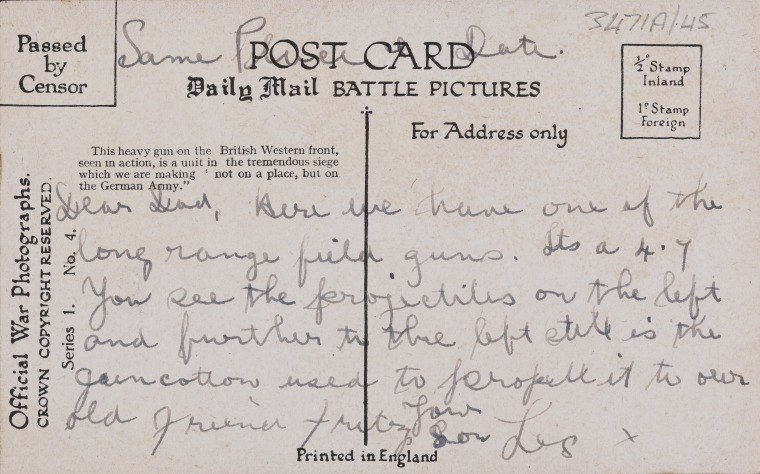 3471A/45
Passed
by
Censor
Same Place & Date.
POST CARD
Daily Mail BATTLE PICTURES
½ᴰ Stamp
Inland
1ᴰ Stamp
Foreign
For Address only
This heavy gun on the British Western front,
seen in action, is a unit in the tremendous siege
which we are making ' not on a place, but on
the German Army."
Official War Photographs.
CROWN COPYRIGHT RESERVED.
Series 1. No. 4.
Dear Dad, Here we have one of the
long range field guns. Its a 4.7
You see the projectiles on the left
and further to the left still is the
guncotton used to propell it to our
old friend Fritz,
Your
Son Les x
Printed in England